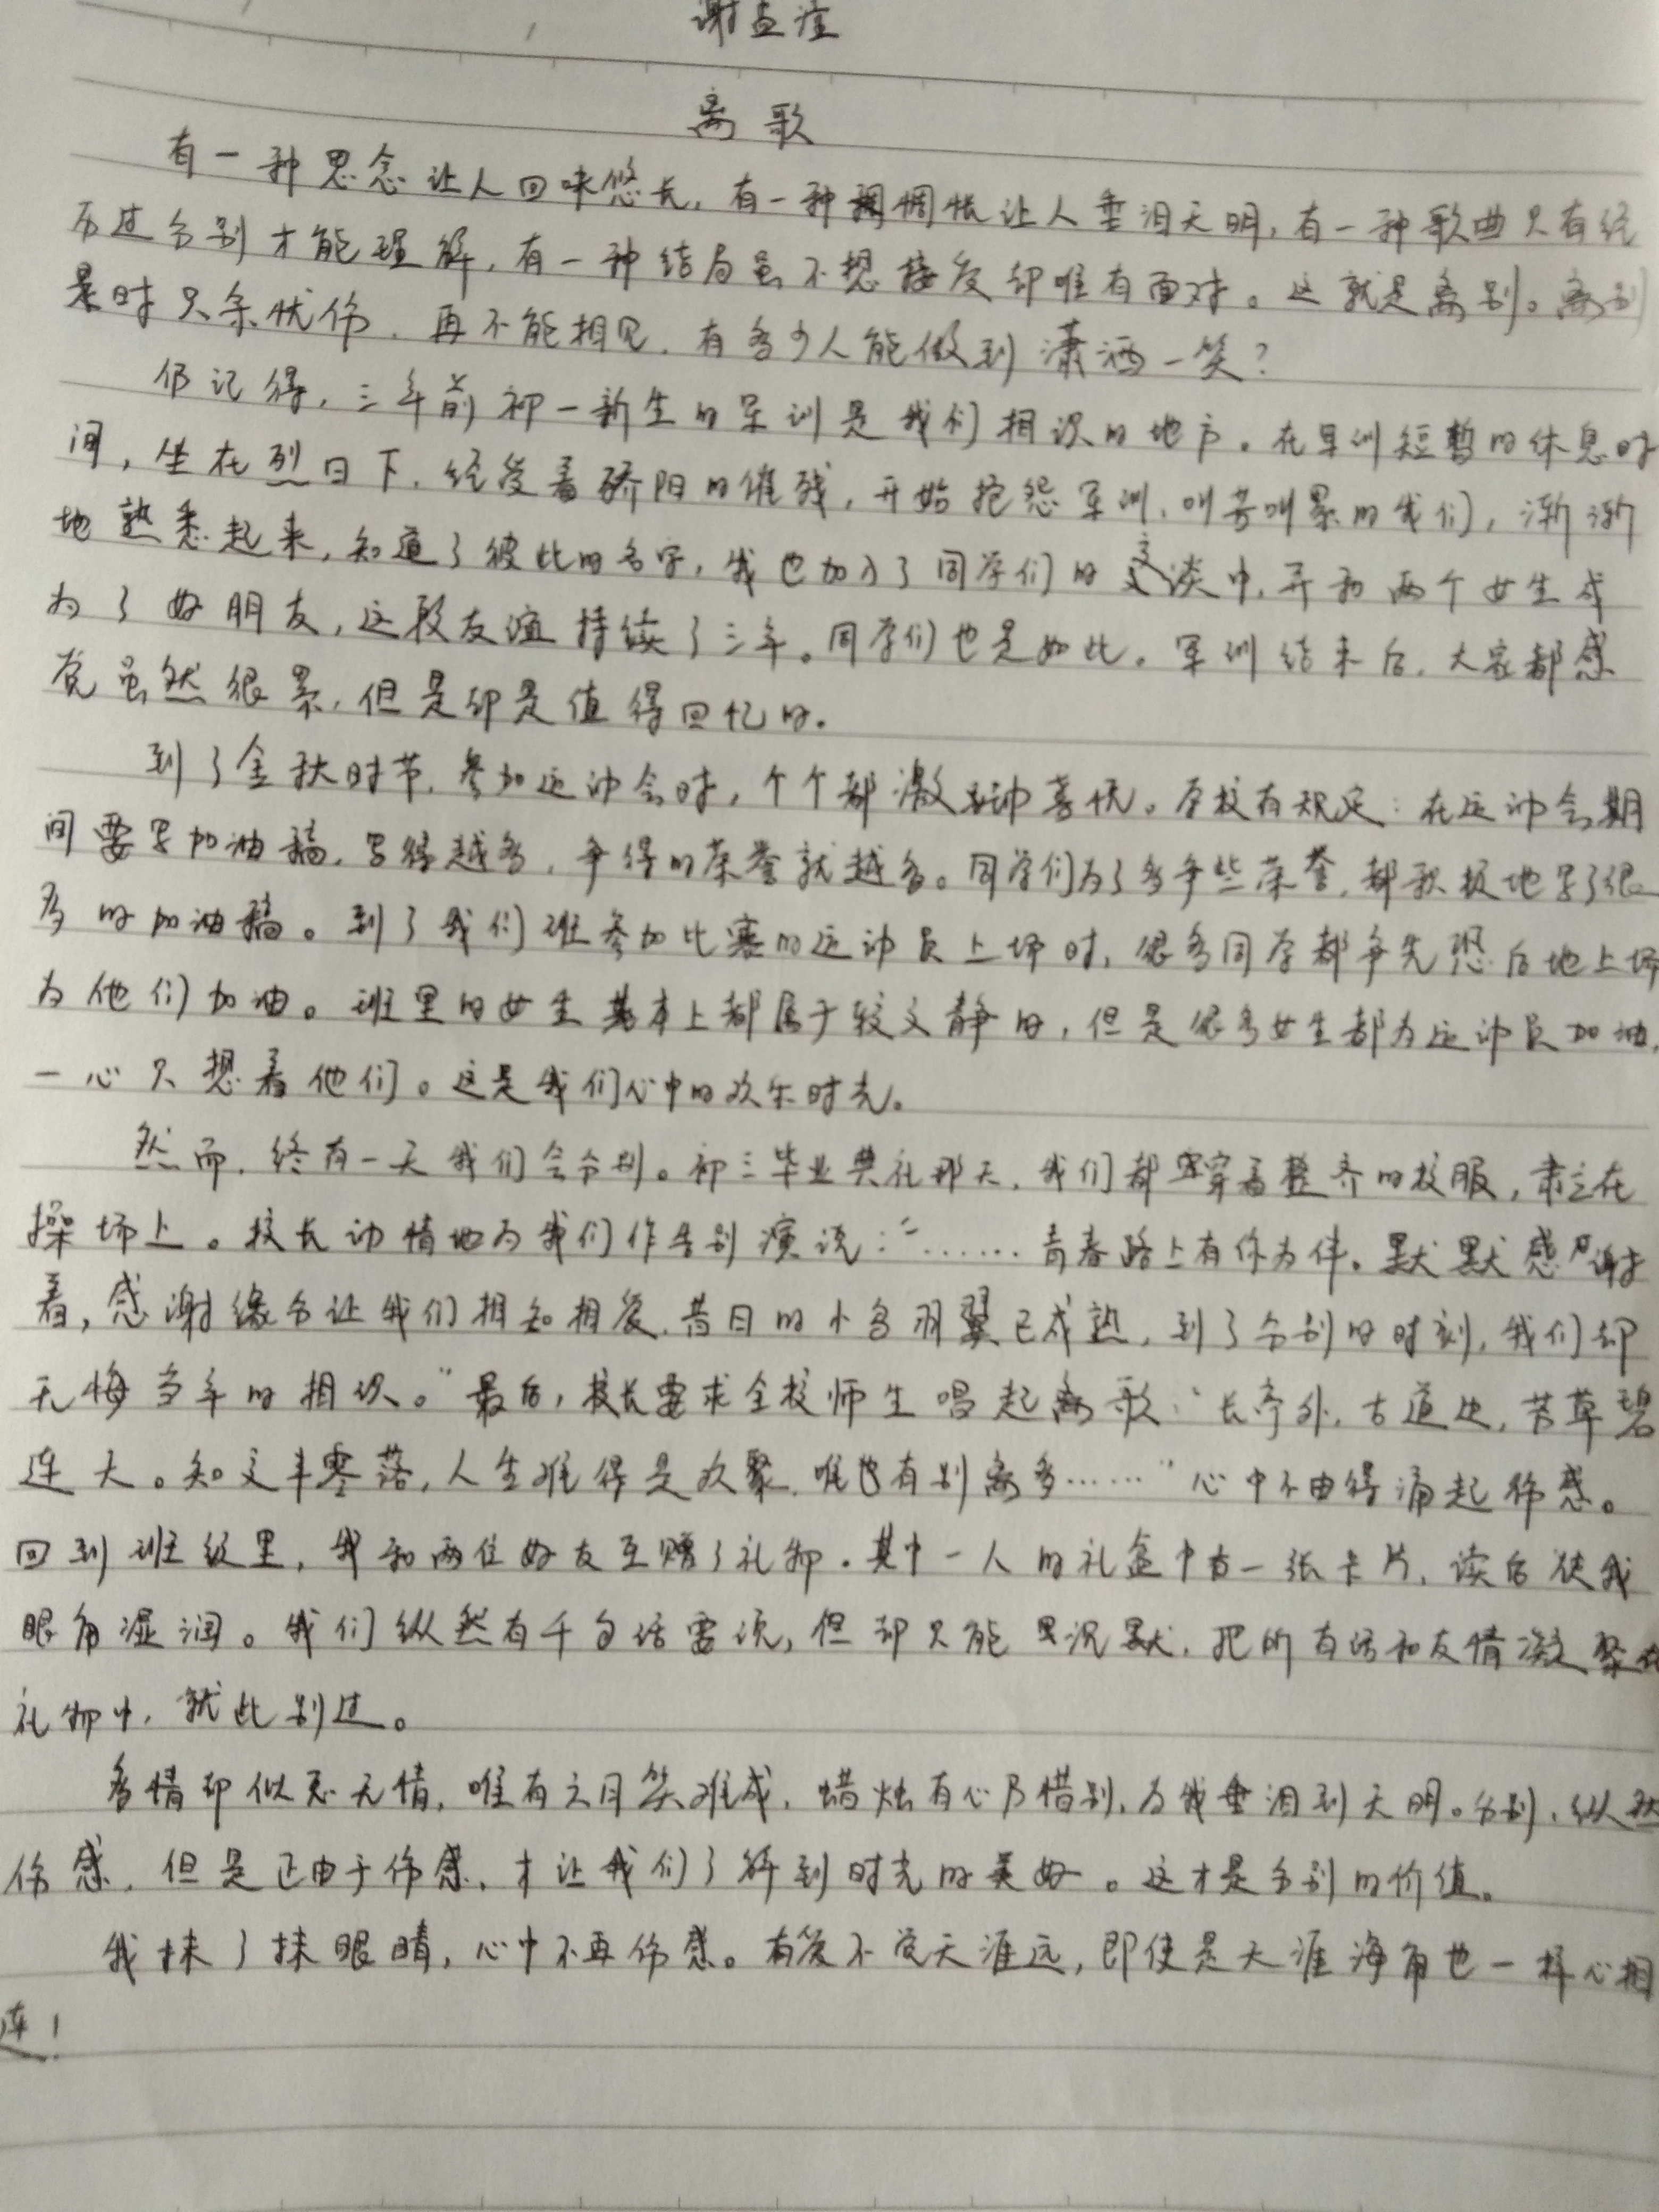 谢孟滢
离歌
有一种思念让人回味悠长,有一种惆怅让人垂泪天明,有一种歌曲只有经
历过分别才能理解,有一种结局虽不想接受却唯有面对。这就是离别。离别
是时只余忧伤,再不能相见,有多少人能做到潇洒一笑?
仍记得,三年前初一新生的军训是我们相识的地方。在军训短暂的休息时
间,坐在烈日下,经受着骄阳的催残,开始抱怨军训,叫苦叫累的我们,渐渐
地熟悉起来,知道了彼此的名字,我也加入了同学们的交谈中,并和两个女生成
为了好朋友,这段友谊持续了三年。同学们也是如此。军训结束后,大家都感
觉虽然很累,但是却是值得回忆的。
到了金秋时节,参加运动会时,个个都激动喜悦。学校有规定:在运动会期
间要写加油稿,写得越多,争得的荣誉就越多。同学们为了多争些荣誉,都积极地写了很
多的加油稿。到了我们班参加比赛的运动员上场时,很多同学都争先恐后地上场
为他们加油。班里的女生基本上都属于较文静的,但是很多女生都为运动员加油,
一心只想着他们。这是我们心中的欢乐时光。
然而,终有一天我们会分别。初三毕业典礼那天,我们都穿着整齐的校服,肃立在
操场上。校长动情地为我们作告别演说:“……青春路上有你为伴。默默感谢
着,感谢缘分让我们相知相爱,昔日的小鸟羽翼已成熟,到了分别的时刻,我们却
无悔当年的相识。”最后,校长要求全校师生唱起离歌:“长亭外,古道边,芳草碧
连天。知交半零落,人生难得是欢聚,唯有别离多……”心中不由得涌起伤感。
回到班级里,我和两位好友互赠了礼物。其中一人的礼盒中有一张卡片,读后使我
眼角湿润。我们纵然有千句话要说,但却只能沉默,把所有话和友情凝聚在
礼物中,就此别过。
多情却似总无情,唯有六月笑难成,蜡烛有心乃惜别,为我垂泪到天明。分别,纵然
伤感,但是正由于伤感,才让我们了解到时光的美好。这才是分别的价值。
我抹了抹眼睛,心中不再伤感。有爱不觉天涯远,即使是天涯海角也一样心相
连!